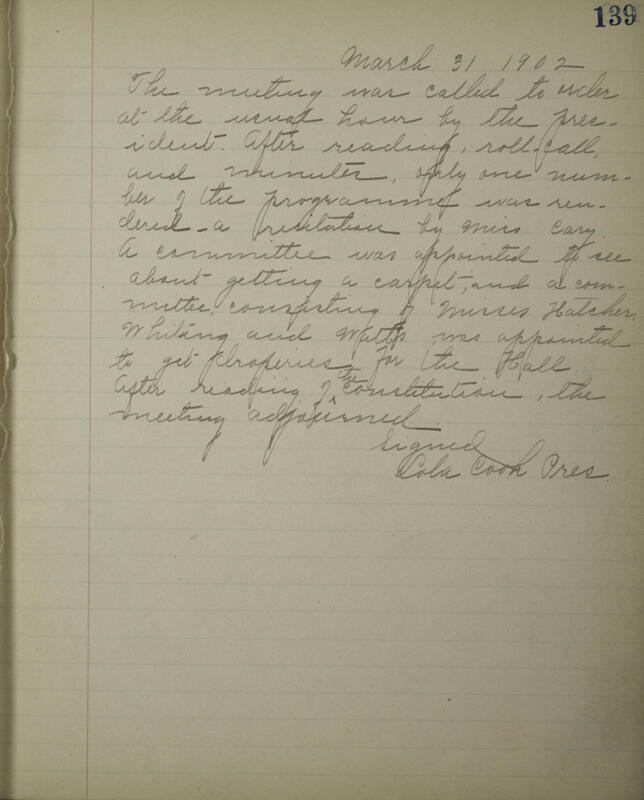 139
March 31 1902
The meeting was called to order
at the usual hour by the pres-
ident. After reading, roll-call,
and minutes, only one num-
ber of the programme was ren-
dered - a recitation by Miss Cary.
A committee was appointed to see
about getting a carpet, and a com-
mittee, consisting of Misses Hatcher,
Whiting and Watts was appointed
to get draperies for the Hall.
After reading of the Constitution, the
meeting adjourned.
Signed
Lola Cook Pres.